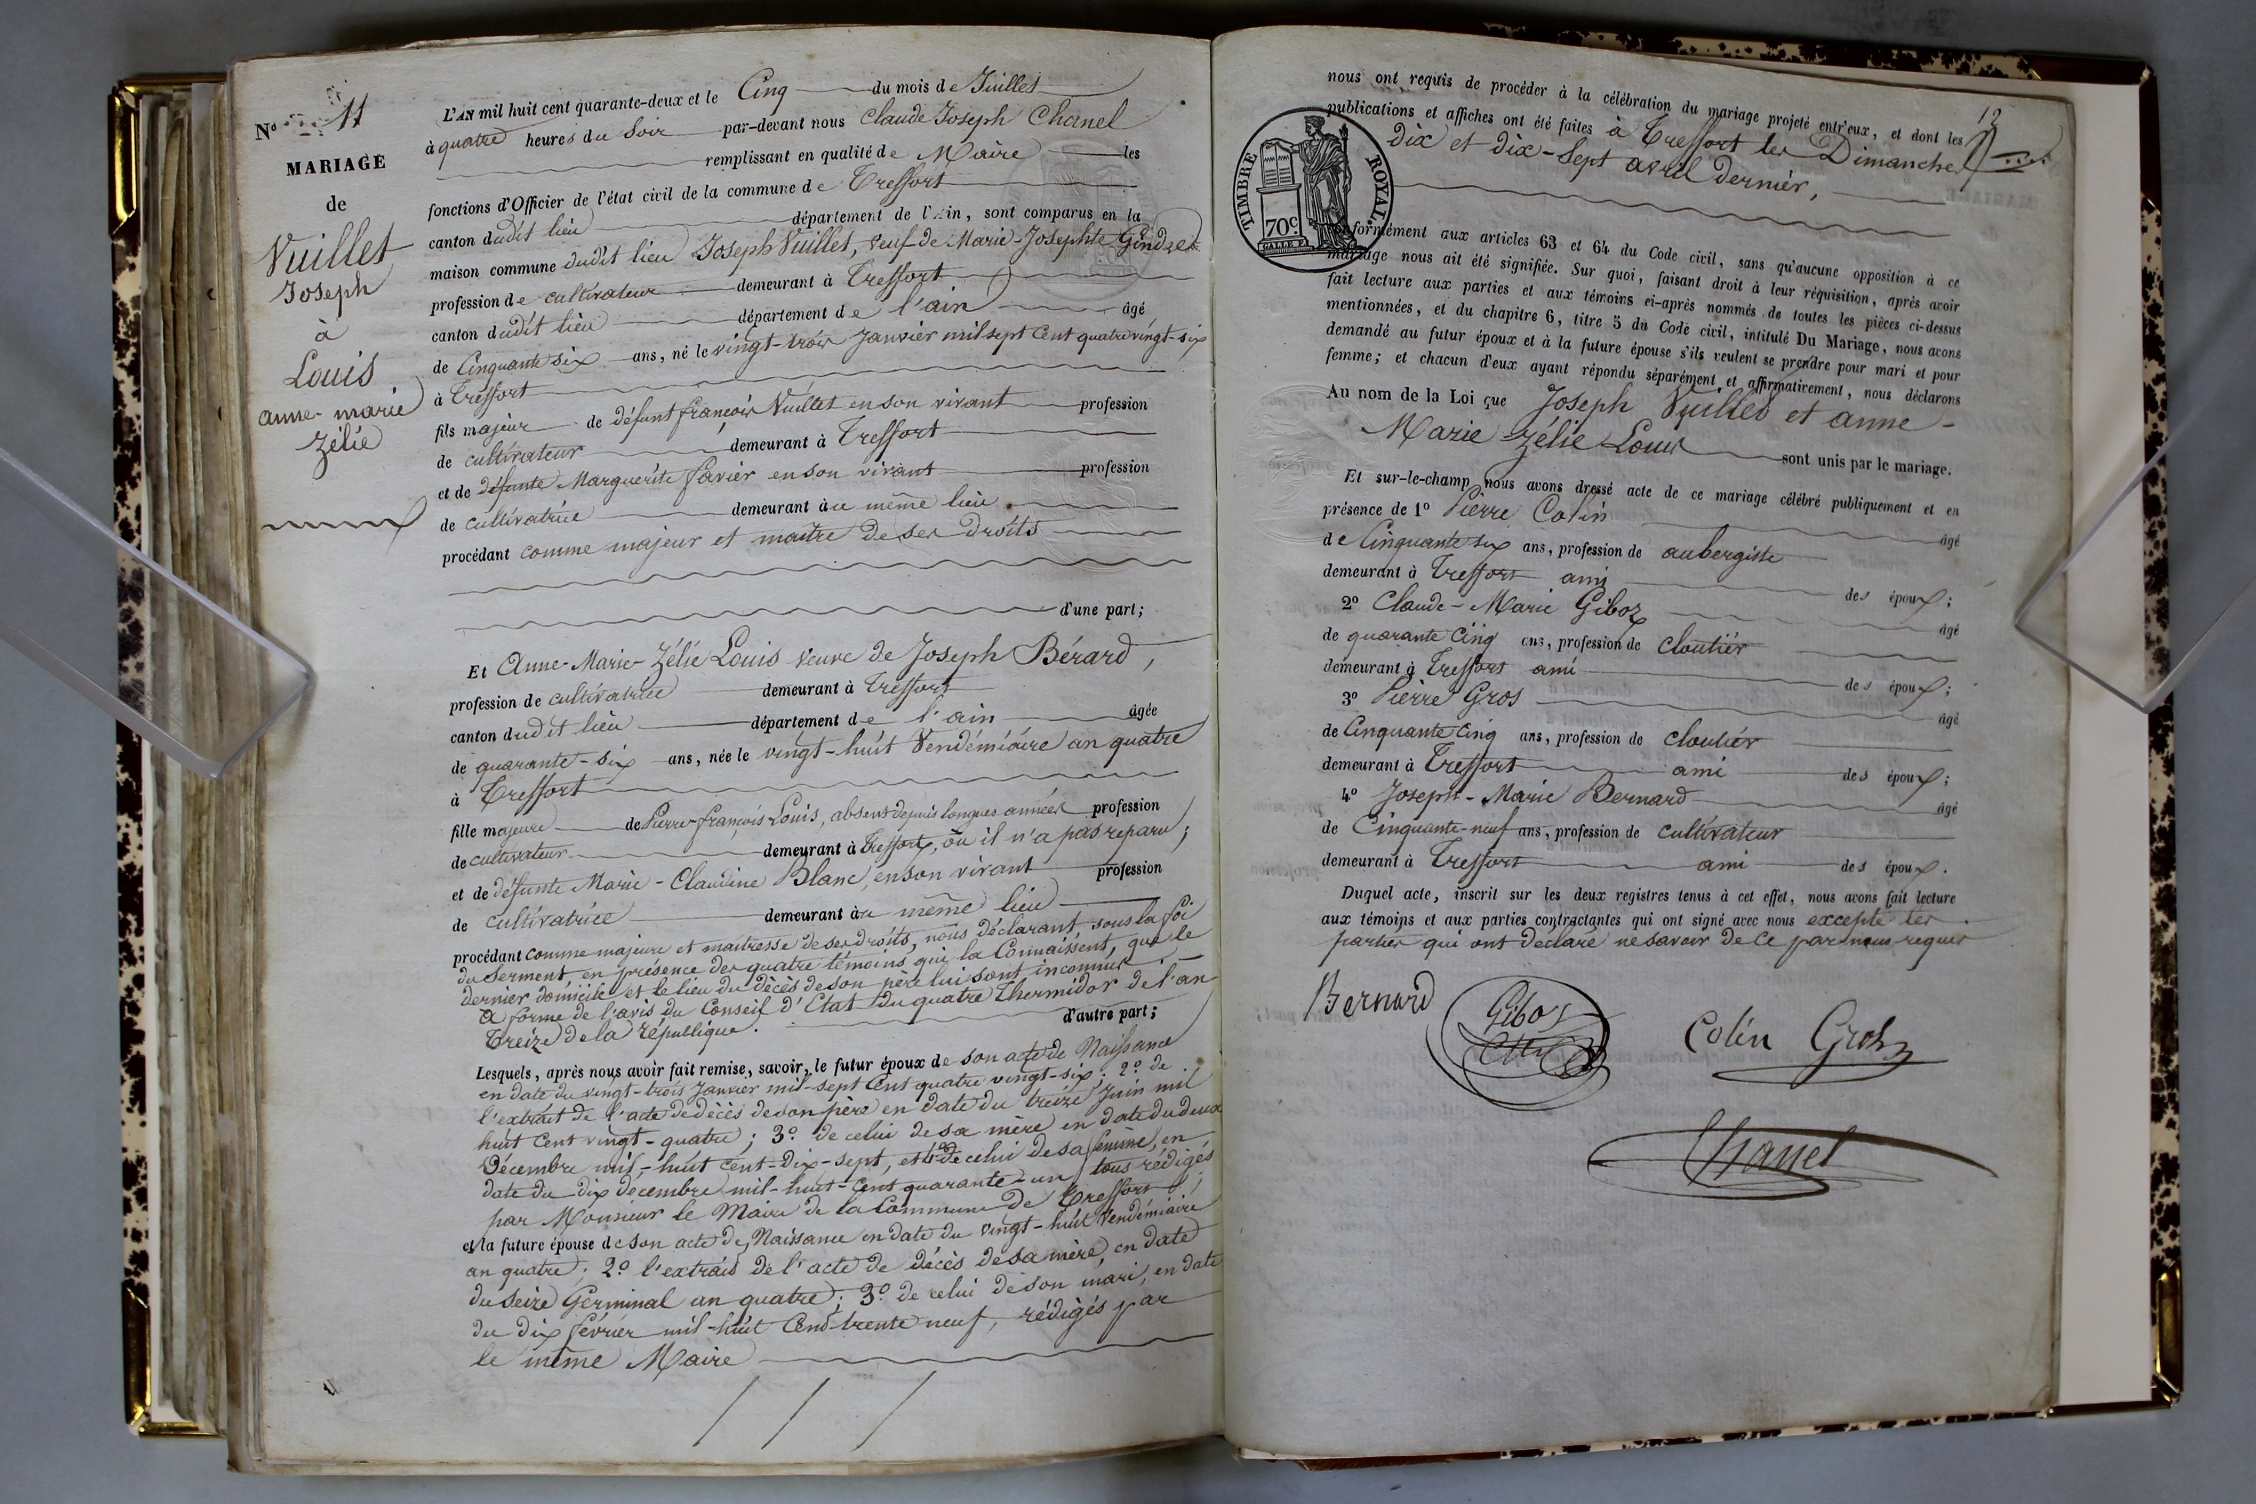 N° 11
MARIAGE
de
Vuillet
Joseph
à
Louis
anne-marie
Zélie
L'AN mil huit cent quarante-deux et le Cinq du mois de Juillet
à quatre heures du Soir par-devant nous Claude Joseph Chanel
remplissant en qualité de Maire les
fonctions d'Officier de l'état civil de la commune de Treffort
canton dudit lieu département de l'Ain, sont comparus en la
maison commune dudit lieu Joseph Vuillet, veuf de Marie-Josephte Gindre
profession de cultivateur demeurant à Treffort
canton dudit lieu département de l'ain âgé
de Cinquante six ans, né le vingt-trois Janvier mil sept Cent quatre vingt-six
à Treffort
fils majeur de défunt françois Vuillet en son vivant profession
de cultivateur demeurant à Treffort
et de défunte Marguerite favier en son vivant profession
de cultivatrice demeurant au même lieu
procédant comme majeur et maître de ses droits
d'une part;
Et Anne-Marie-Zélie Louis veuve de Joseph Bérard,
profession de cultivatrice demeurant à Treffort
canton dudit lieu département de l'ain âgée
de quarante-six ans, née le vingt-huit Vendémiaire an quatre
à Treffort
fille majeure de Pierre-françois Louis, absent depuis longues années profession
de cultivateur demeurant à Treffort, où il n'a pas reparu;
et de défunte Marie-Claudine Blanc, en son vivant profession
de cultivatrice demeurant au même lieu
procédant comme majeure et maitresse de ses droits, nous déclarant sous la foi
du Serment, en présence des quatre témoins qui la Connaissent, que le
dernier domicile et le lieu du décès de son père lui sont inconnus
a forme de l'avis du Conseil d'Etat du quatre Thermidor de l'an
Treize de la république. d'autre part;
Lesquels, après nous avoir fait remise, savoir, le futur époux de son acte de Naissance
en date du vingt-trois Janvier mil-sept Cent quatre vingt-six; 2° de
l'extrait de l'acte de décès de son père en date du treize Juin mil
huit Cent vingt-quatre; 3° de celui de sa mère en date du deux
Décembre mil-huit cent-Dix-sept, et 4° de celui de sa femme, en
date du dix décembre mil-huit-Cent quarante-un tous rédigés
par Monsieur le Maire de la Commune de Treffort;
et la future épouse de son acte de Naissance en date du vingt-huit Vendémiaire
an quatre; 2° l'extrait de l'acte de décès de sa mère, en date
du Seize Germinal an quatre; 3° de celui de son mari, en date
du Dix février mil-huit Cent trente neuf, rédigés par
le même Maire
12
nous ont requis de procéder à la célébration du mariage projeté entr'eux, et dont les
publications et affiches ont été faites à Treffort les Dimanches
Dix et Dix-Sept avril dernier,
TIMBRE ROYAL.
70c
conformément aux articles 63 et 64 du Code civil, sans qu'aucune opposition à ce
mariage nous ait été signifiée. Sur quoi, faisant droit à leur réquisition, après avoir
fait lecture aux parties et aux témoins ci-après nommés de toutes les pièces ci-dessus
mentionnées, et du chapitre 6, titre 5 du Code civil, intitulé Du Mariage, nous avons
demandé au futur époux et à la future épouse s'ils veulent se prendre pour mari et pour
femme; et chacun d'eux ayant répondu séparément et affirmativement, nous déclarons
Au nom de la Loi que Joseph Vuillet et anne-
Marie-Zélie Louis sont unis par le mariage.
Et sur-le-champ nous avons dressé acte de ce mariage célébré publiquement et en
présence de 1° Pierre Colin âgé
de Cinquante six ans, profession de aubergiste
demeurant à Treffort ami des époux;
2° Claude-Marie Giboz âgé
de quarante Cinq ans, profession de cloutier
demeurant à Treffort ami des époux;
3° Pierre Gros âgé
de Cinquante Cinq ans, profession de cloutier
demeurant à Treffort ami des époux;
4° Joseph-Marie Bernard âgé
de Cinquante-neuf ans, profession de cultivateur
demeurant à Treffort ami des époux.
Duquel acte, inscrit sur les deux registres tenus à cet effet, nous avons fait lecture
aux témoins et aux parties contractantes qui ont signé avec nous excepté les
parties qui ont déclaré ne savoir de ce par nous requis
Bernard Giboz Colin Gros
Chanel